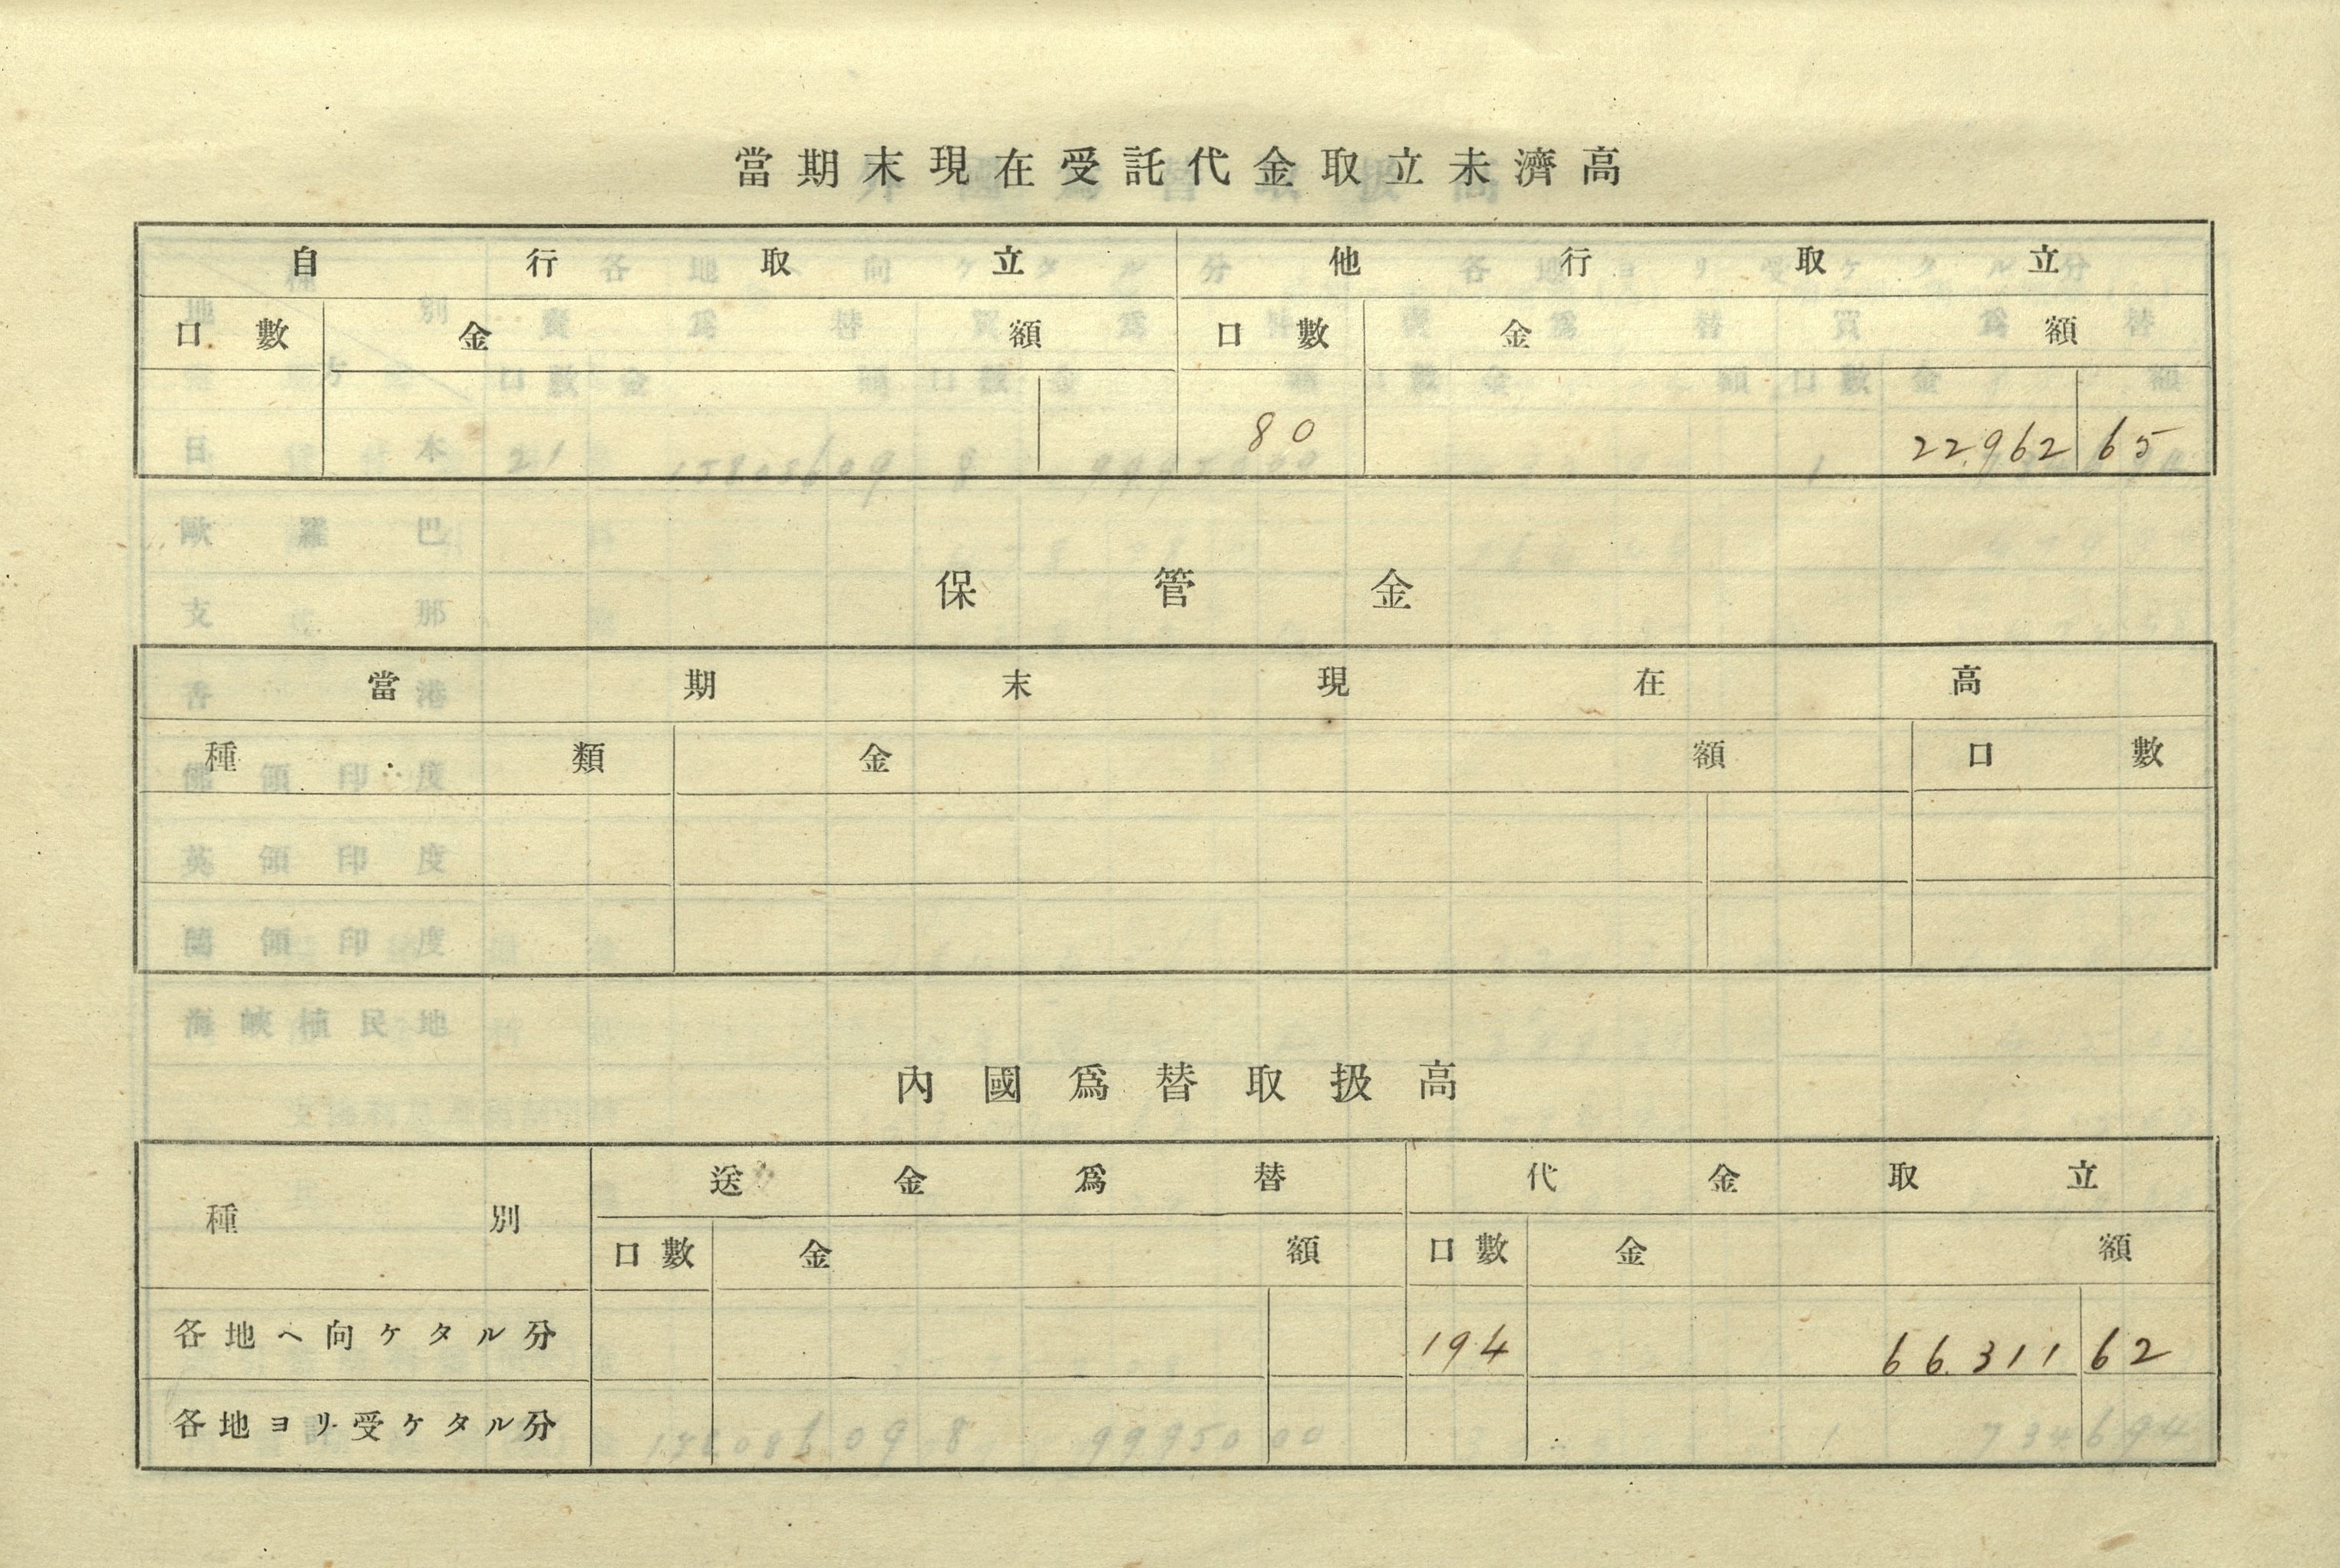 當期末現在受託代金取立未濟高
自行取立 他行取立
口數 金額 口數 金額
80 22.962 65
保管金
當期末現在高
種類 金額 口數
內國爲替取扱高
種別 送金爲替 代金取立
口數 金額 口數 金額
各地ヘ向ケタル分 194 66.311 62
各地ヨリ受ケタル分